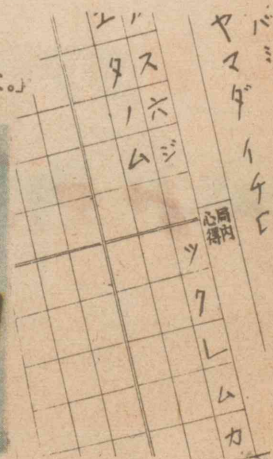 バミ
ヤマダイチ
局内心得
ス六ジツク」ムカ
エタノム
。」